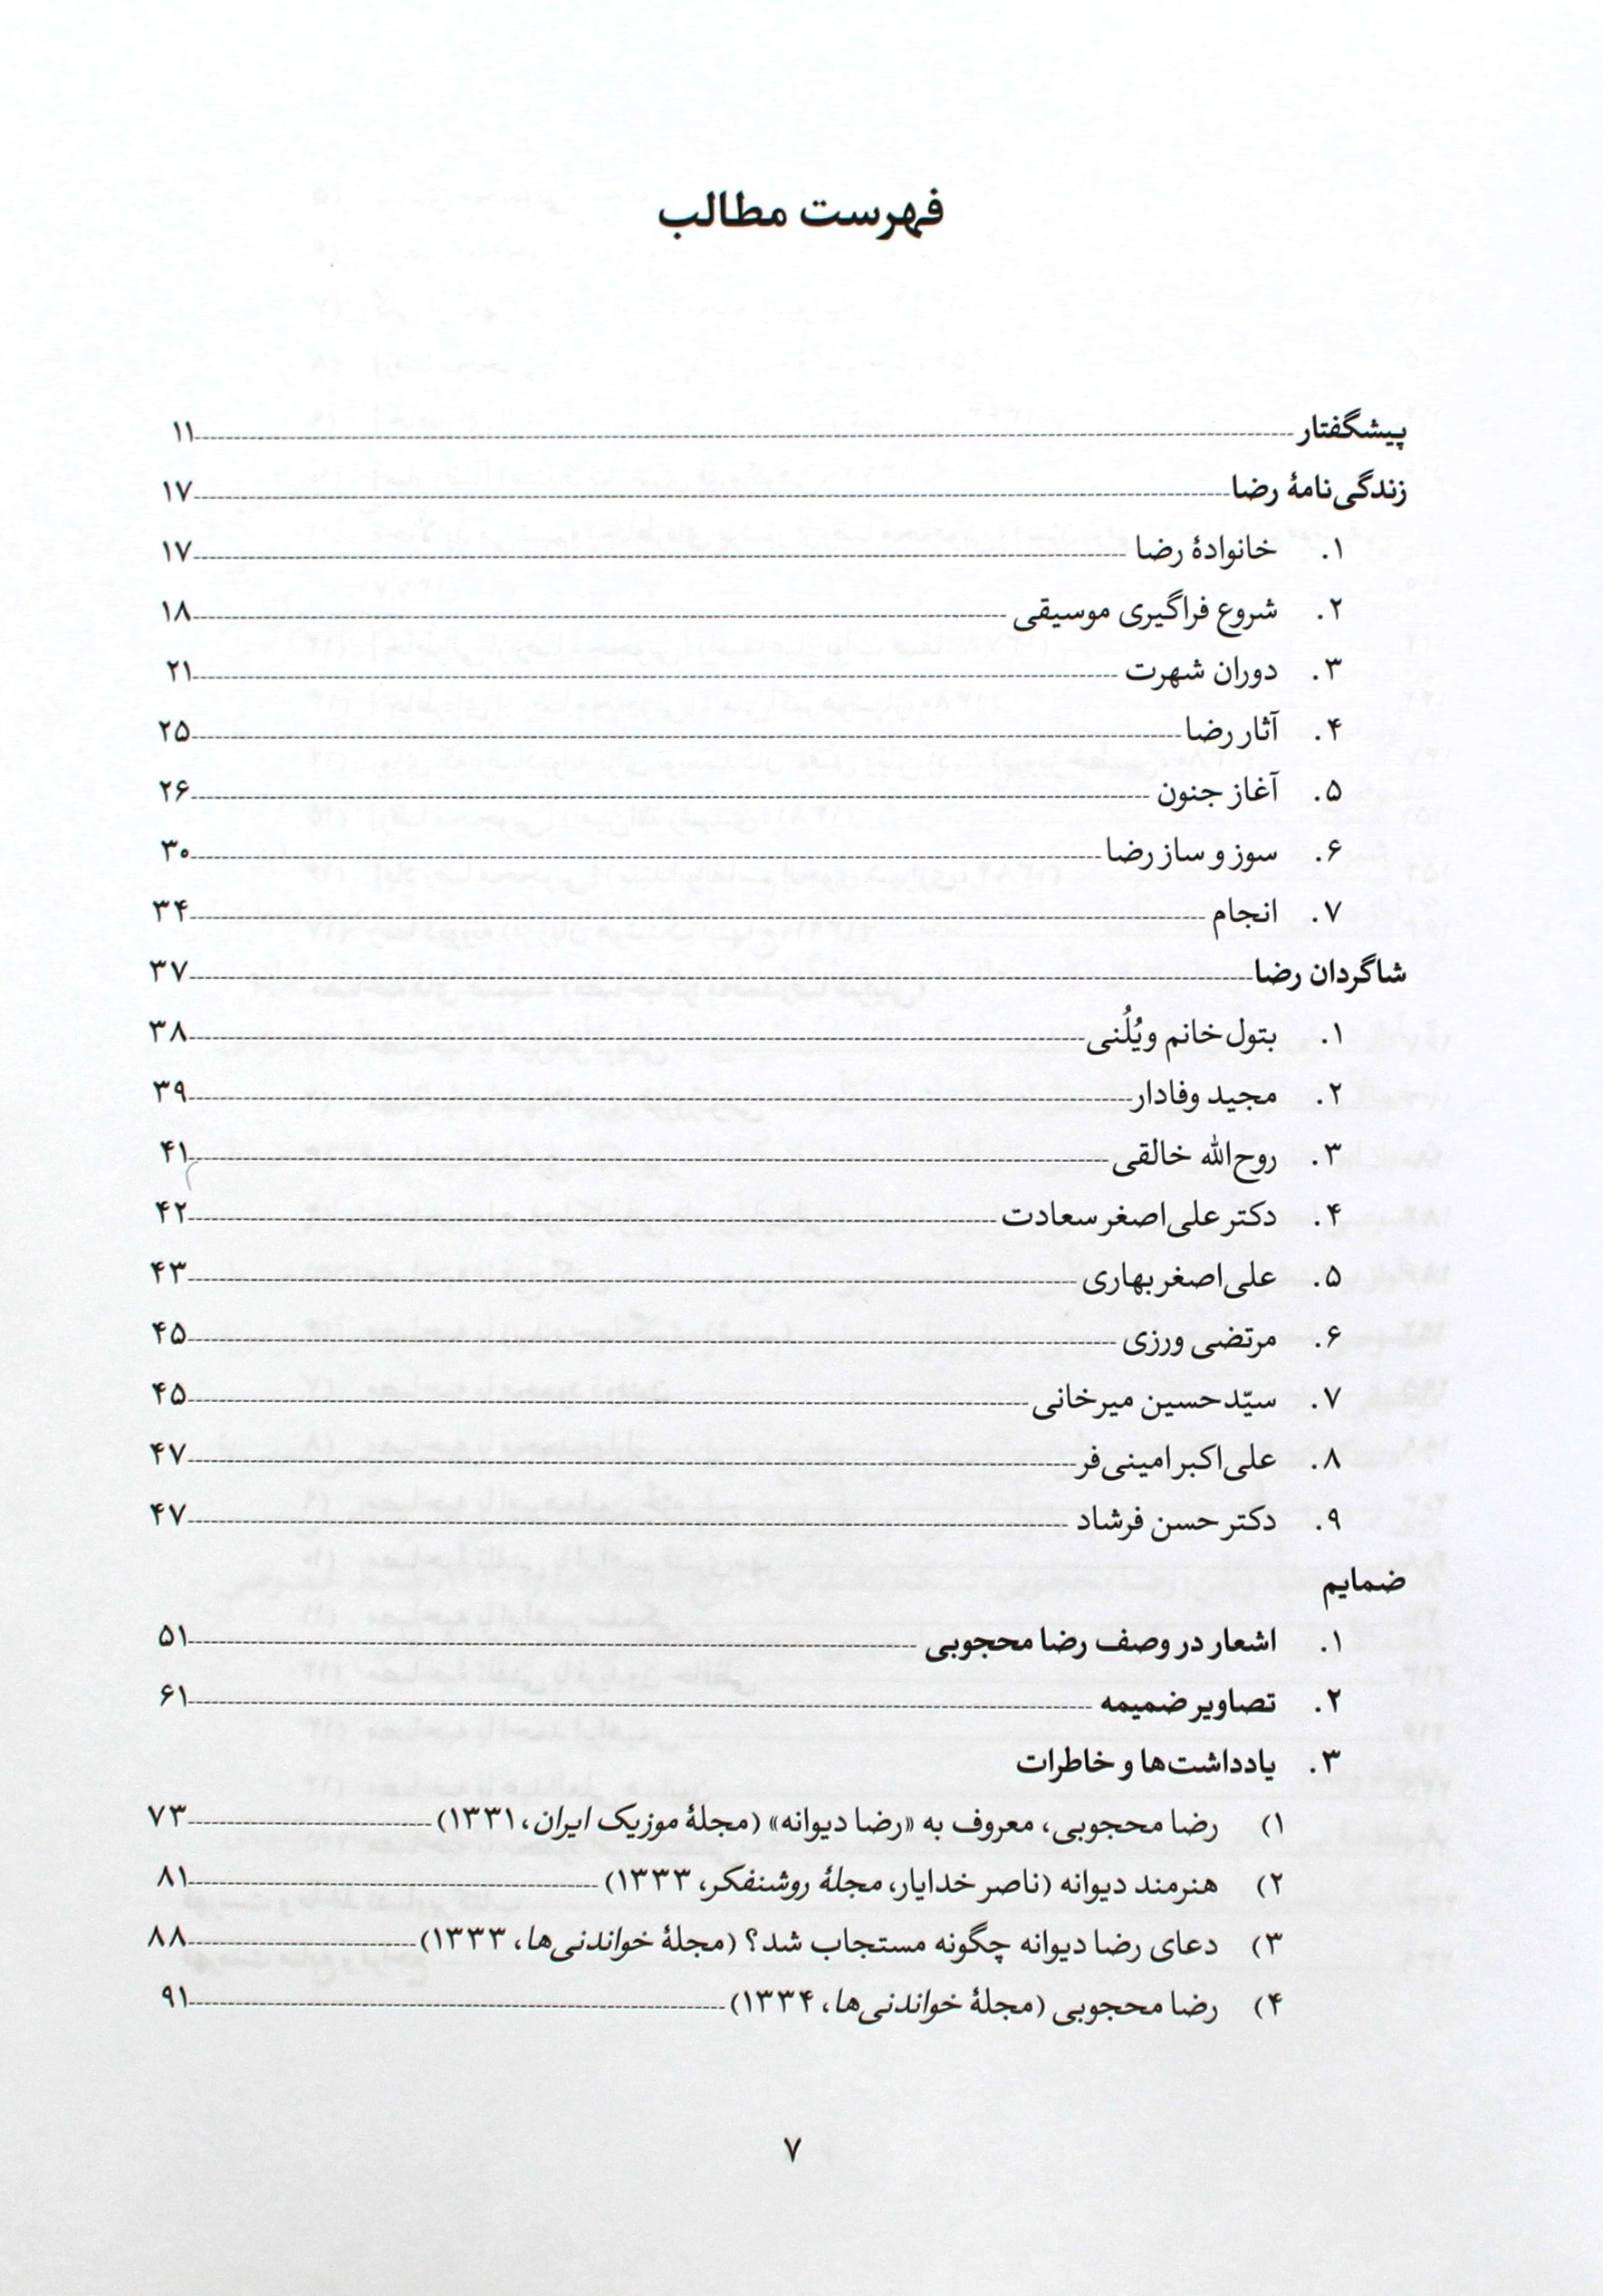 فهرست مطالب
پیشگفتار ۱۱
زندگی‌نامهٔ رضا ۱۷
۱. خانوادهٔ رضا ۱۷
۲. شروع فراگیری موسیقی ۱۸
۳. دوران شهرت ۲۱
۴. آثار رضا ۲۵
۵. آغاز جنون ۲۶
۶. سوز و ساز رضا ۳۰
۷. انجام ۳۴
شاگردان رضا ۳۷
۱. بتول‌خانم ویُلُنی ۳۸
۲. مجید وفادار ۳۹
۳. روح‌الله خالقی ۴۱
۴. دکتر علی‌اصغر سعادت ۴۲
۵. علی‌اصغر بهاری ۴۳
۶. مرتضی ورزی ۴۵
۷. سیّدحسین میرخانی ۴۵
۸. علی‌اکبر امینی‌فر ۴۷
۹. دکتر حسن فرشاد ۴۷
ضمایم
۱. اشعار در وصف رضا محجوبی ۵۱
۲. تصاویر ضمیمه ۶۱
۳. یادداشت‌ها و خاطرات
۱) رضا محجوبی، معروف به «رضا دیوانه» (مجلهٔ موزیک ایران، ۱۳۳۱) ۷۳
۲) هنرمند دیوانه (ناصر خدایار، مجلهٔ روشنفکر، ۱۳۳۳) ۸۱
۳) دعای رضا دیوانه چگونه مستجاب شد؟ (مجلهٔ خواندنی‌ها، ۱۳۳۳) ۸۸
۴) رضا محجوبی (مجلهٔ خواندنی‌ها، ۱۳۳۴) ۹۱
۷